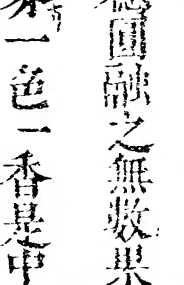 圓融之無數果
一色一香是中